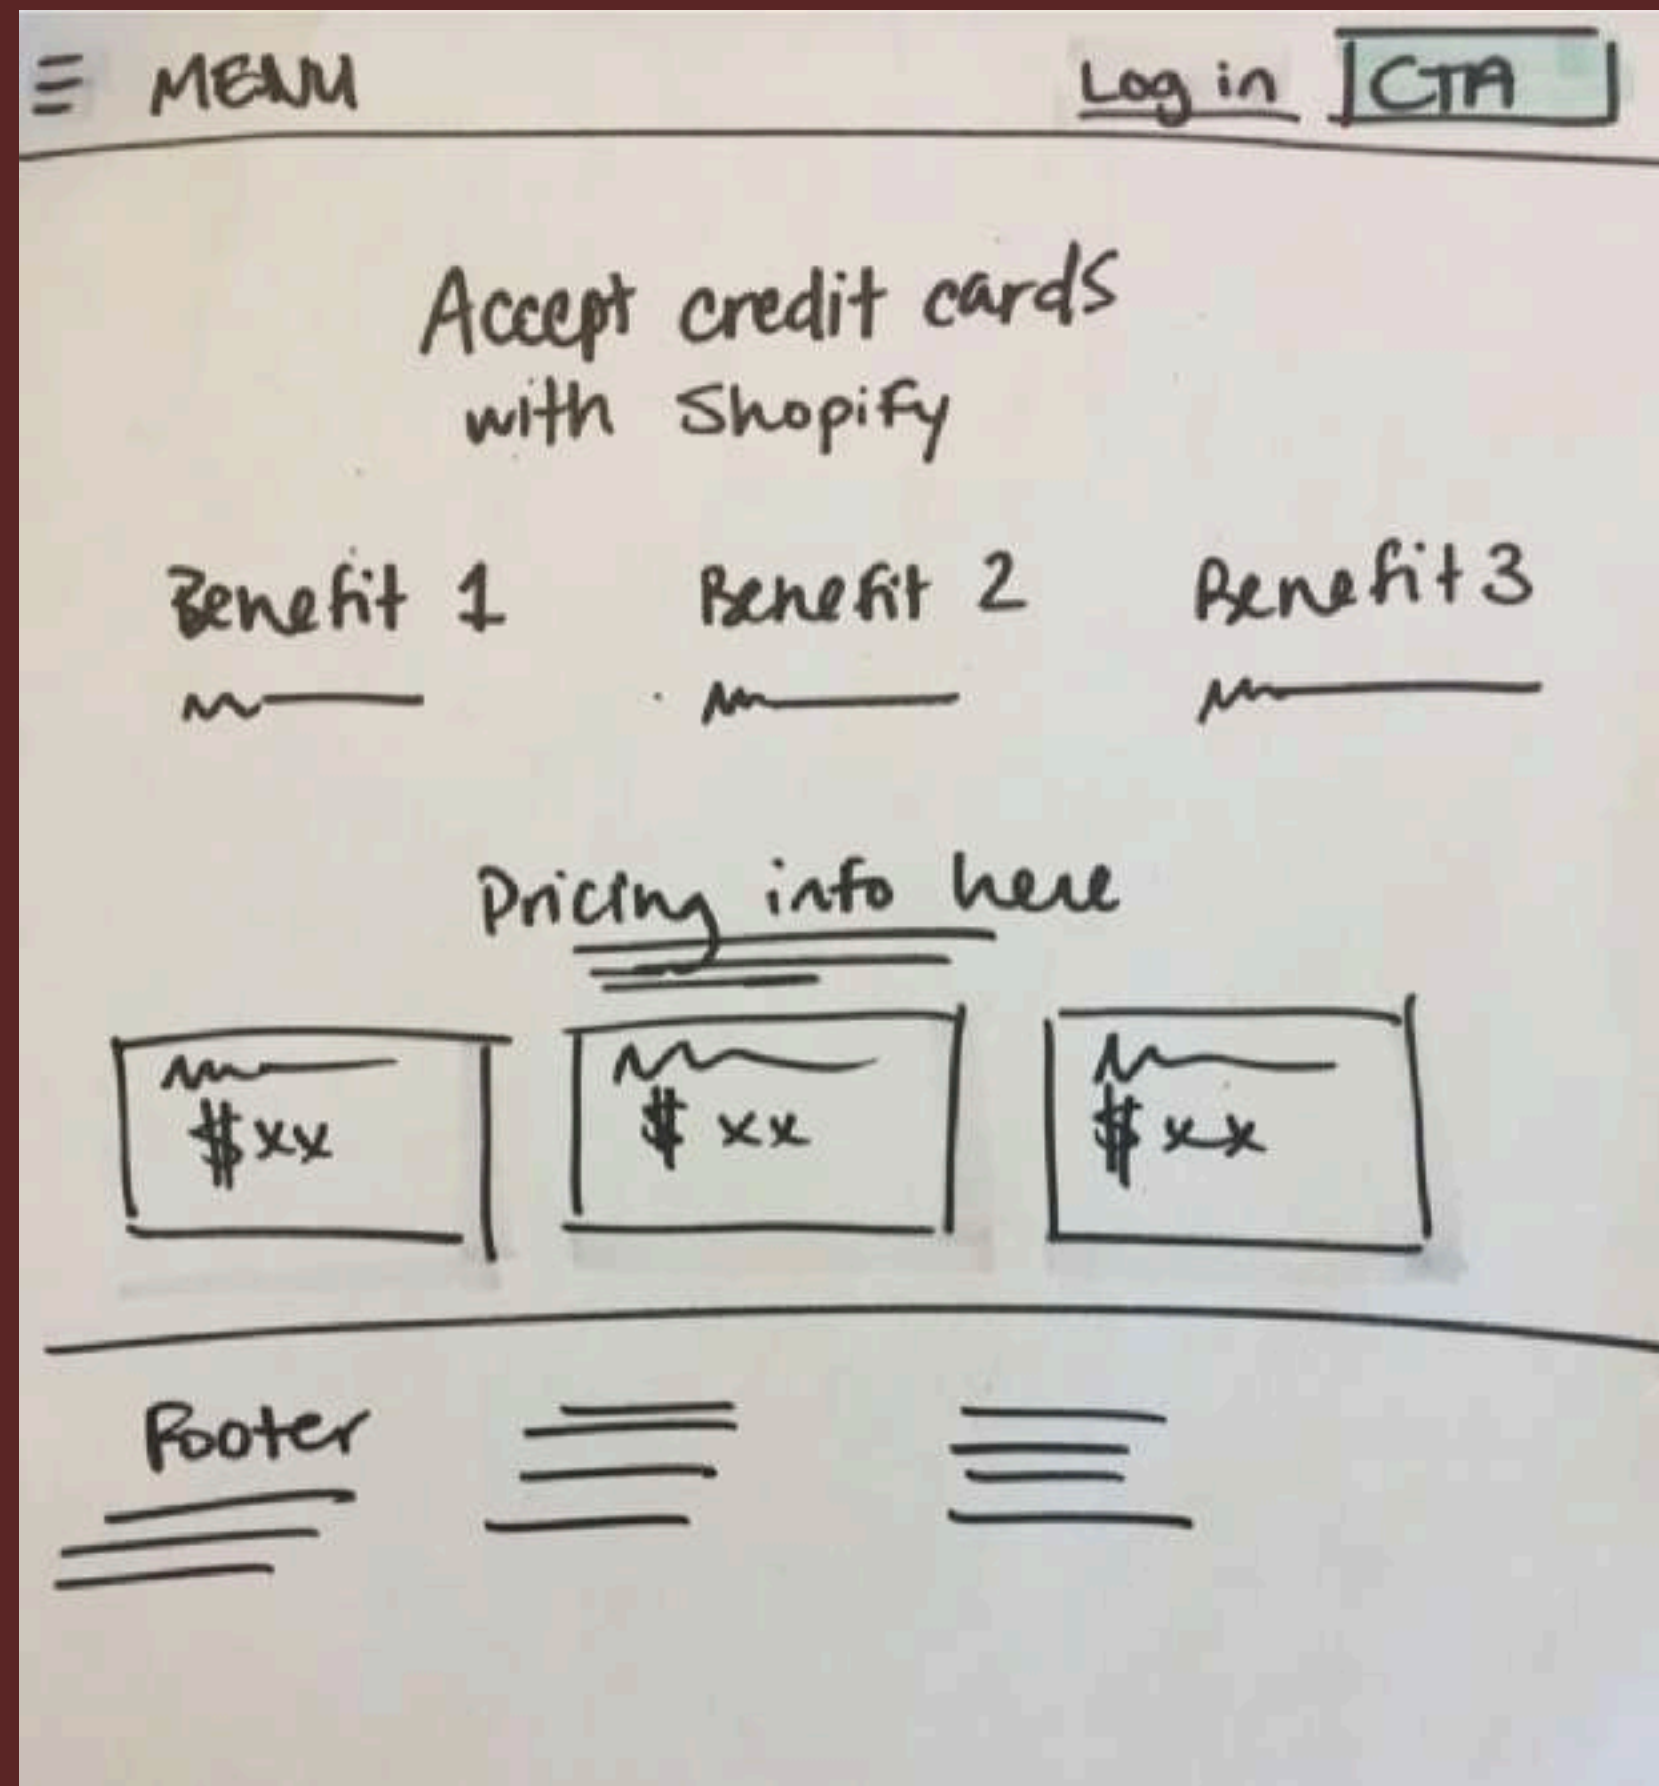 MENU Log in CTA
Accept credit cards
with Shopify
Benefit 1 Benefit 2 Benefit 3
Pricing info here
$xx $ xx $ xx
Footer